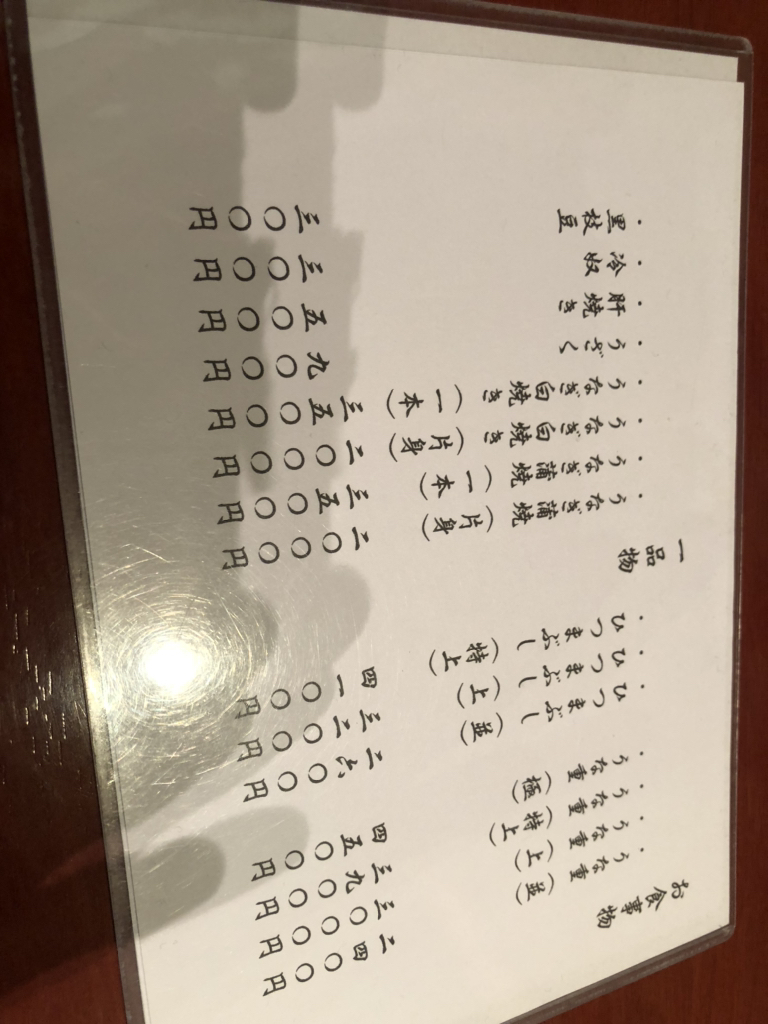 お食事物
・うな重(並) 二四〇〇円
・うな重(上) 三〇〇〇円
・うな重(特上) 三九〇〇円
・うな重(極) 四五〇〇円
・ひつまぶし(並) 二六〇〇円
・ひつまぶし(上) 三二〇〇円
・ひつまぶし(特上) 四一〇〇円
一品物
・うなぎ蒲焼(片身) 二〇〇〇円
・うなぎ蒲焼(一本) 三五〇〇円
・うなぎ白焼き(片身) 二〇〇〇円
・うなぎ白焼き(一本) 三五〇〇円
・うざく 九〇〇円
・肝焼き 五〇〇円
・冷奴 三〇〇円
・黒枝豆 三〇〇円